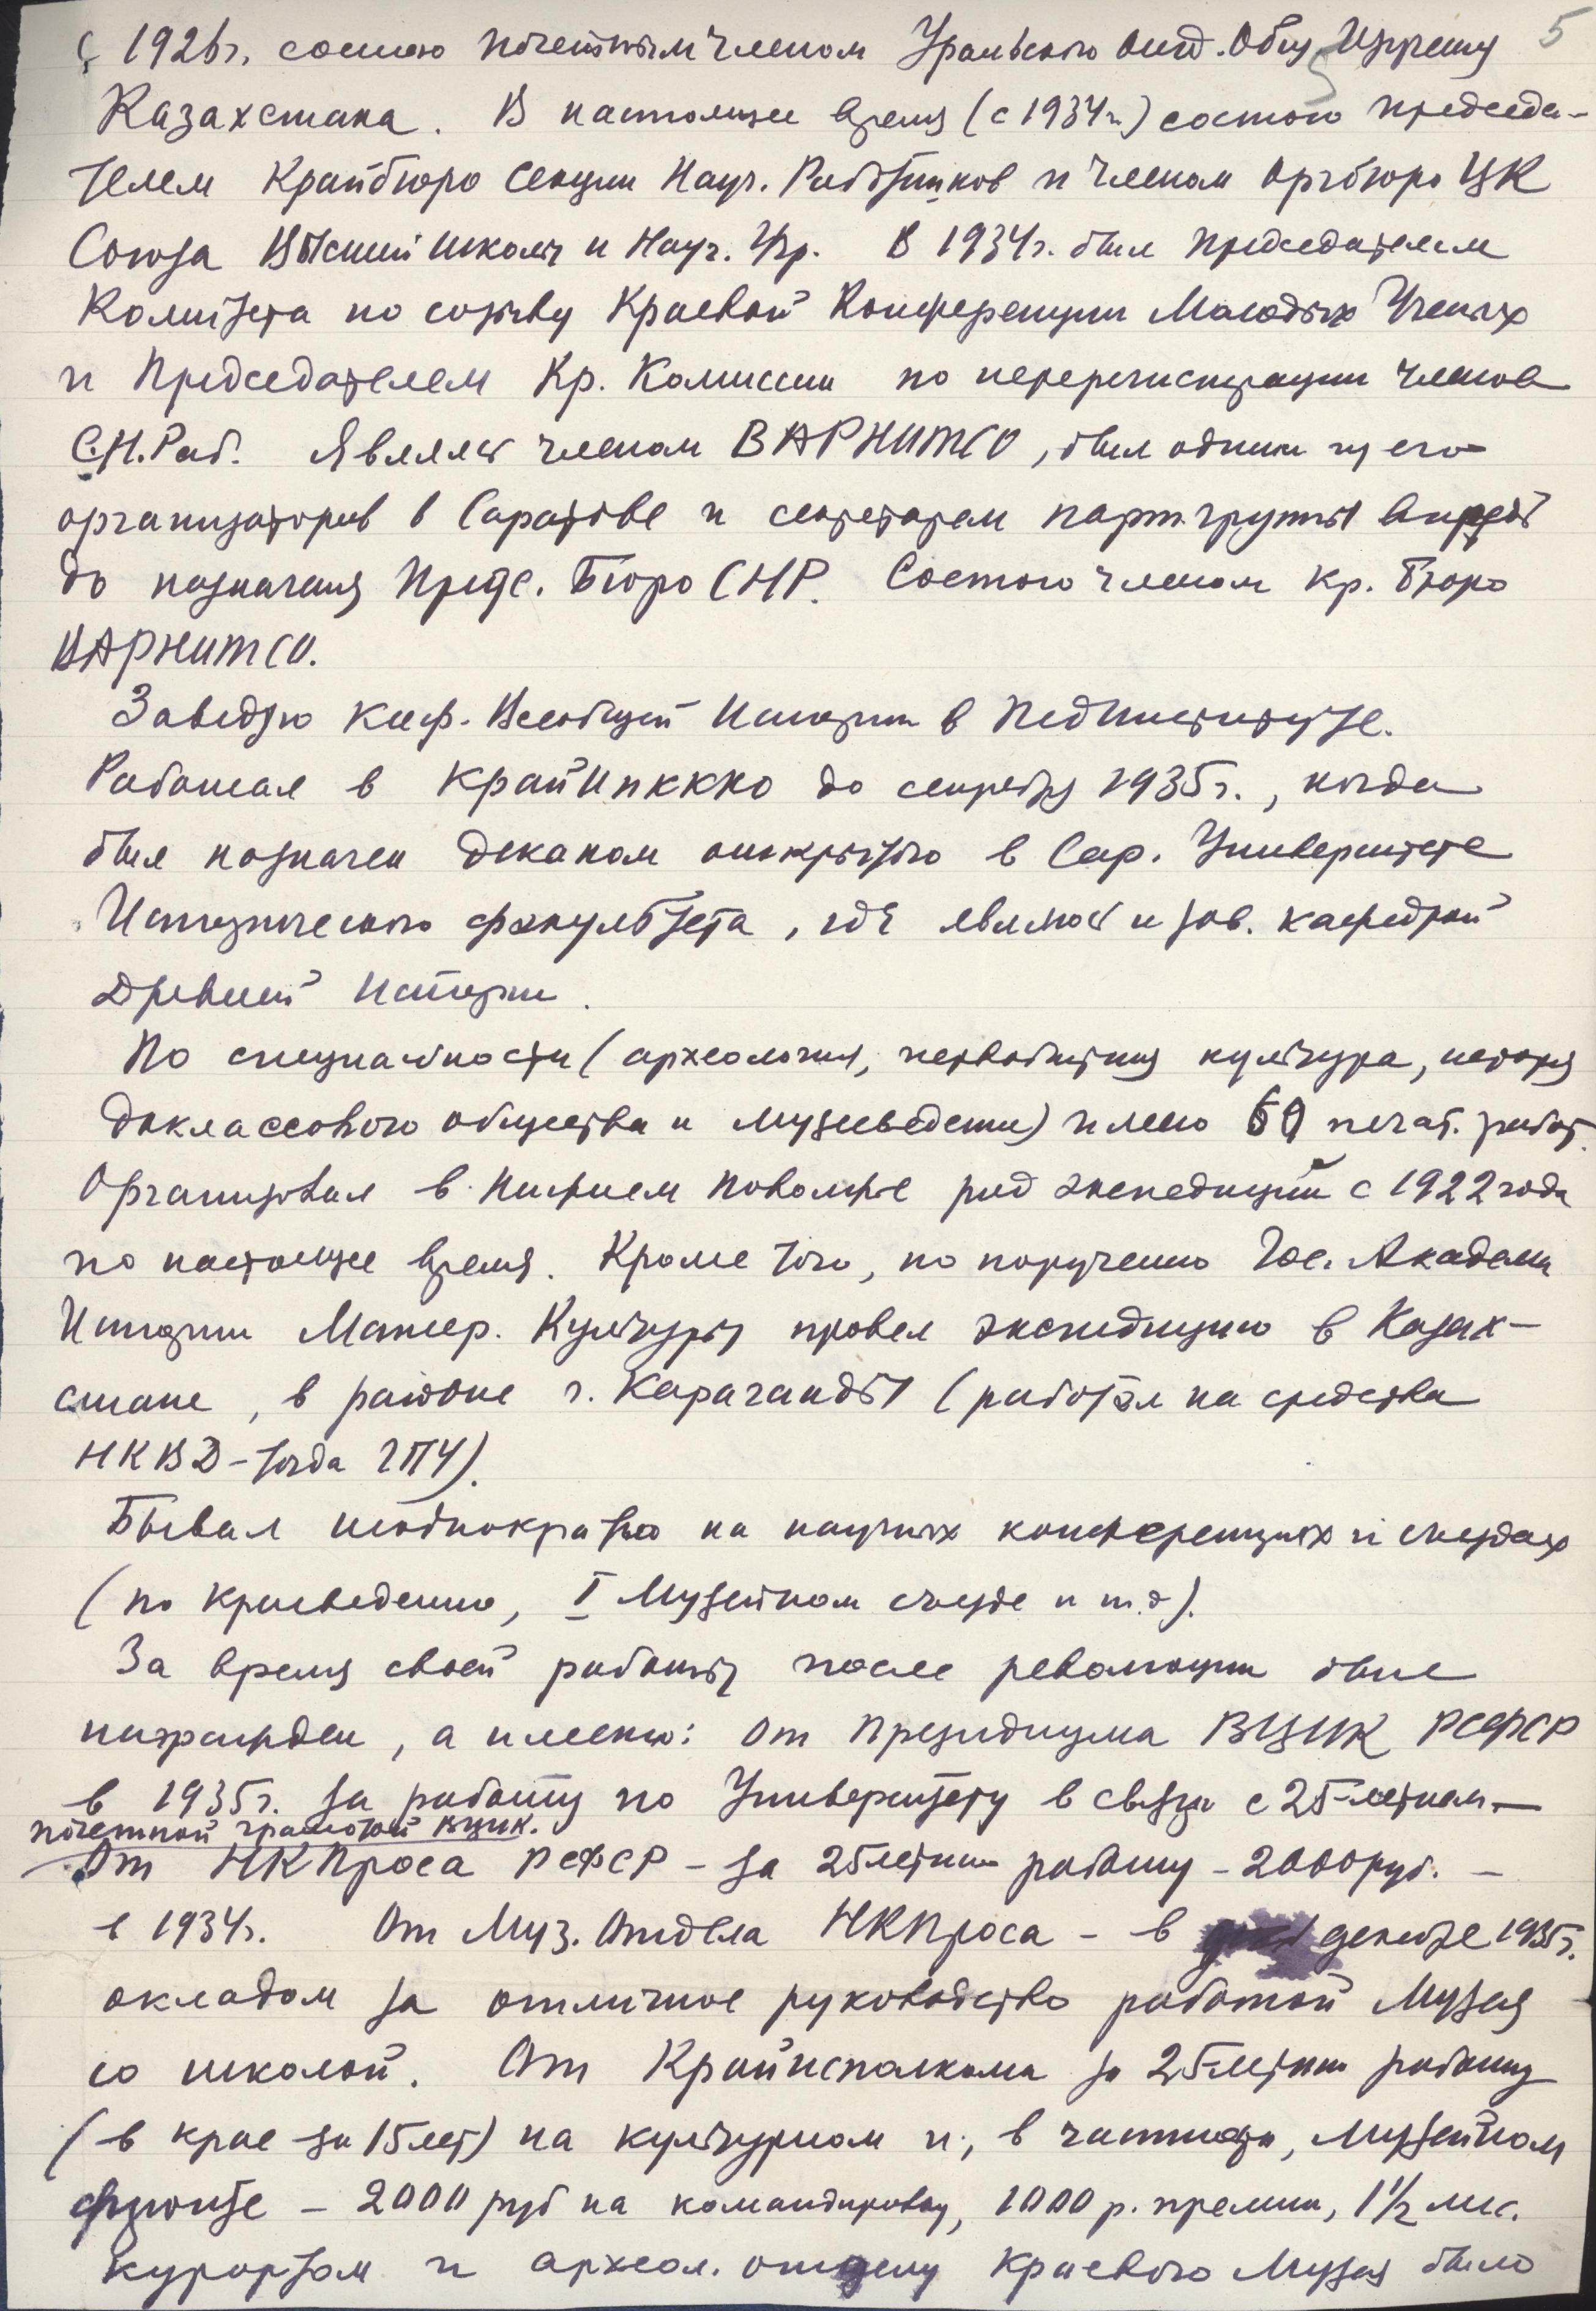 5
С 1926 г. состою почетным членом Уральского отд. Общ. Изучения
Казахстана. В настоящее время (с 1934 г.) состою председа-
телем Крайбюро Секции Науч. Работников и членом Оргбюро ЦК
Союза Высшей школы и Науч. Учр. В 1934 г. был председателем
Комитета по созыву Краевой Конференции Молодых Ученых
и Председателем Кр. Комиссии по перерегистрации членов
С.Н.Раб. Являясь членом ВАРНИТСО, был одним из его
организаторов в Саратове и секретарем партгруппы вплоть
до назначения Предс. Бюро СНР. Состою членом Кр. Бюро
ВАРНИТСО.
Заведую Каф. Всеобщей Истории в ПедИнституте.
Работал в КрайИпкКНО до сентября 1935 г., когда
был назначен деканом открытого в Сар. Университете
Исторического факультета, где являюсь и зав. кафедрой
Древней Истории.
По специальности (археология, первобытная культура, история
доклассового общества и музееведение) имею 60 печат. работ.
Организовал в Нижнем Поволжье ряд экспедиций с 1922 года
по настоящее время. Кроме того, по поручению Гос. Академии
Истории Матер. Культуры провел экспедицию в Казах-
стане, в районе г. Караганды (работал на средства
НКВД - тогда ГПУ).
Бывал неоднократно на научных конференциях и съездах
(по краеведению, I Музейном съезде и т.д).
За время своей работы после революции был
награжден, а именно: от Президиума ВЦИК РСФСР
в 1935 г. за работу по Университету в связи с 25-летием —
почетной грамотой ВЦИК.
От НКПроса РСФСР - за 25летнюю работу - 2000 руб. -
в 1934 г. От Муз. Отдела НКПроса - в декабре 1935 г.
окладом за отличное руководство работой Музея
со школой. От Крайисполкома за 25летнюю работу
(в крае за 15 лет) на культурном и, в частности, музейном
фронте - 2000 руб на командировку, 1000 р. премии, 1 1/2 мес.
курортом и археол. отделу Краевого Музея было